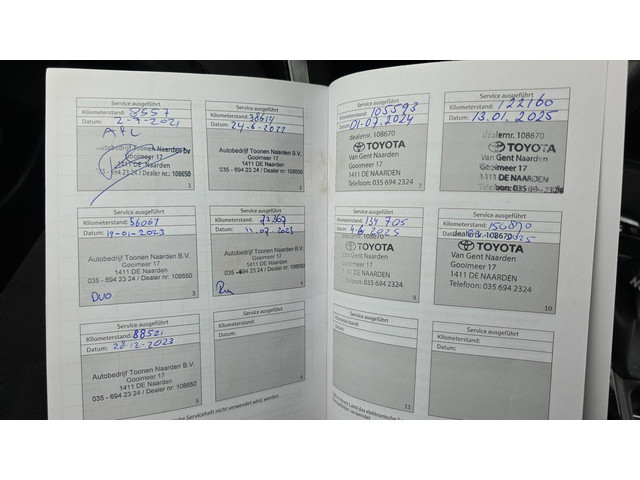 Service ausgeführt
Kilometerstand: 8557
Datum: 2-9-2021
APK
Autobedrijf Toonen Naarden BV
Gooimeer 17
1411 DE Naarden
035 - 694 23 24 / Dealer nr.: 108650
1
Service ausgeführt
Kilometerstand: 38614
Datum: 24-6-2022
Autobedrijf Toonen Naarden B.V.
Gooimeer 17
1411 DE Naarden
035 - 694 23 24 / Dealer nr: 108650
2
Service ausgeführt
Kilometerstand: 56067
Datum: 19-01-2023
Autobedrijf Toonen Naarden B.V.
Gooimeer 17
1411 DE Naarden
035 - 694 23 24 / Dealer nr: 108650
DUO
3
Service ausgeführt
Kilometerstand: 72367
Datum: 11-07-2023
Autobedrijf Toonen Naarden B.V.
Gooimeer 17
1411 DE Naarden
035 - 694 23 24 / Dealer nr: 108650
4
Service ausgeführt
Kilometerstand: 88521
Datum: 28-12-2023
Autobedrijf Toonen Naarden B.V.
Gooimeer 17
1411 DE Naarden
035 - 694 23 24 / Dealer nr: 108650
5
Service ausgeführt
Kilometerstand:
Datum:
Autobedrijf Toonen Naarden B.V.
Gooimeer 17
1411 DE Naarden
035 - 694 23 24 / Dealer nr: 108650
Serviceheft nicht verwendet wird, werden
Service ausgeführt
Kilometerstand: 105593
Datum: 01-07-2024
dealernr. 108670
TOYOTA
Van Gent Naarden
Gooimeer 17
1411 DE NAARDEN
Telefoon: 035 694 2324
7
Service ausgeführt
Kilometerstand: 122160
Datum: 13.01.2025
dealernr. 108670
TOYOTA
Van Gent Naarden
Gooimeer 17
1411 DE NAARDEN
Telefoon: 035 694
Service ausgeführt
Kilometerstand: 134705
Datum: 4-6-2025
TOYOTA
Van Gent Naarden
Gooimeer 17
1411 DE NAARDEN
Telefoon: 035 694 2324
9
Service ausgeführt
Kilometerstand:
Datum:
dealernr. 108670
TOYOTA
Van Gent Naarden
Gooimeer 17
1411 DE NAARDEN
Telefoon: 035 694 2324
10
Service ausgeführt
Kilometerstand:
Datum:
11
Service ausgeführt
Kilometerstand:
Datum: